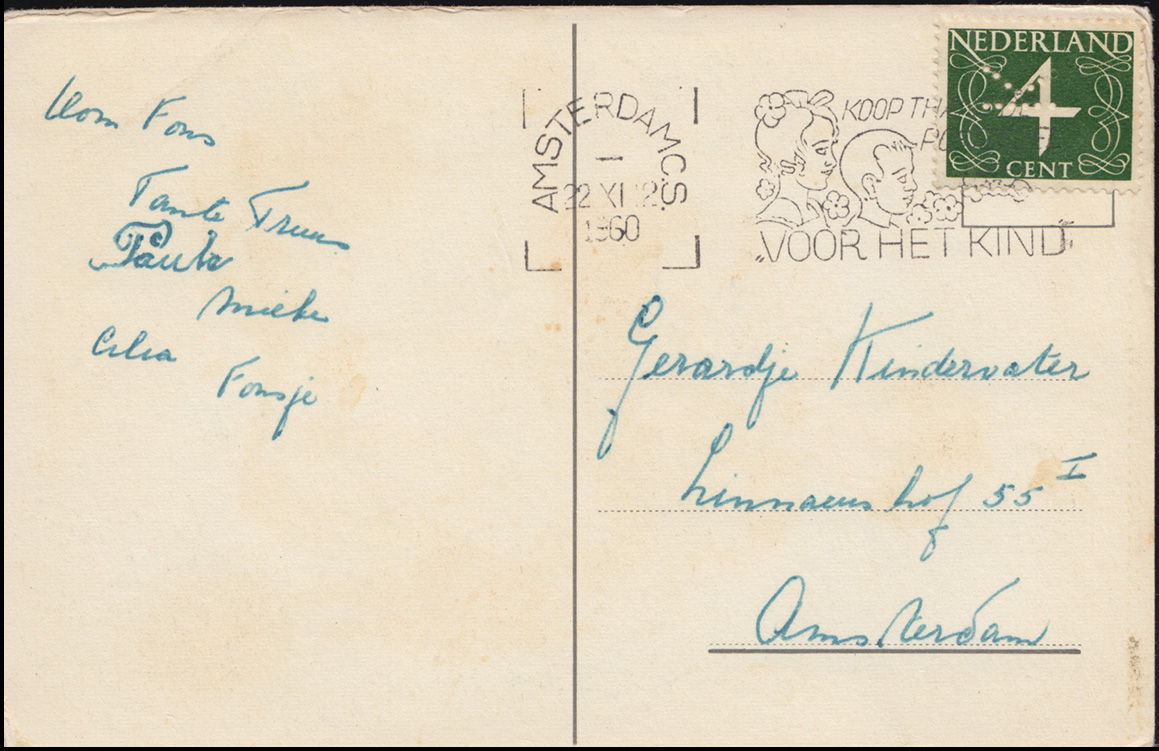 Oom Fons
Tante Truus
Paula
Mieke
Celia
Fonsje
AMSTERDAM C.S.
1
22 XI 12
1960
KOOP THANS DE
POSTZEGELS
„VOOR HET KIND”
NEDERLAND
4
CENT
Gerardje Kindervater
Linnaeushof 55 I
Amsterdam